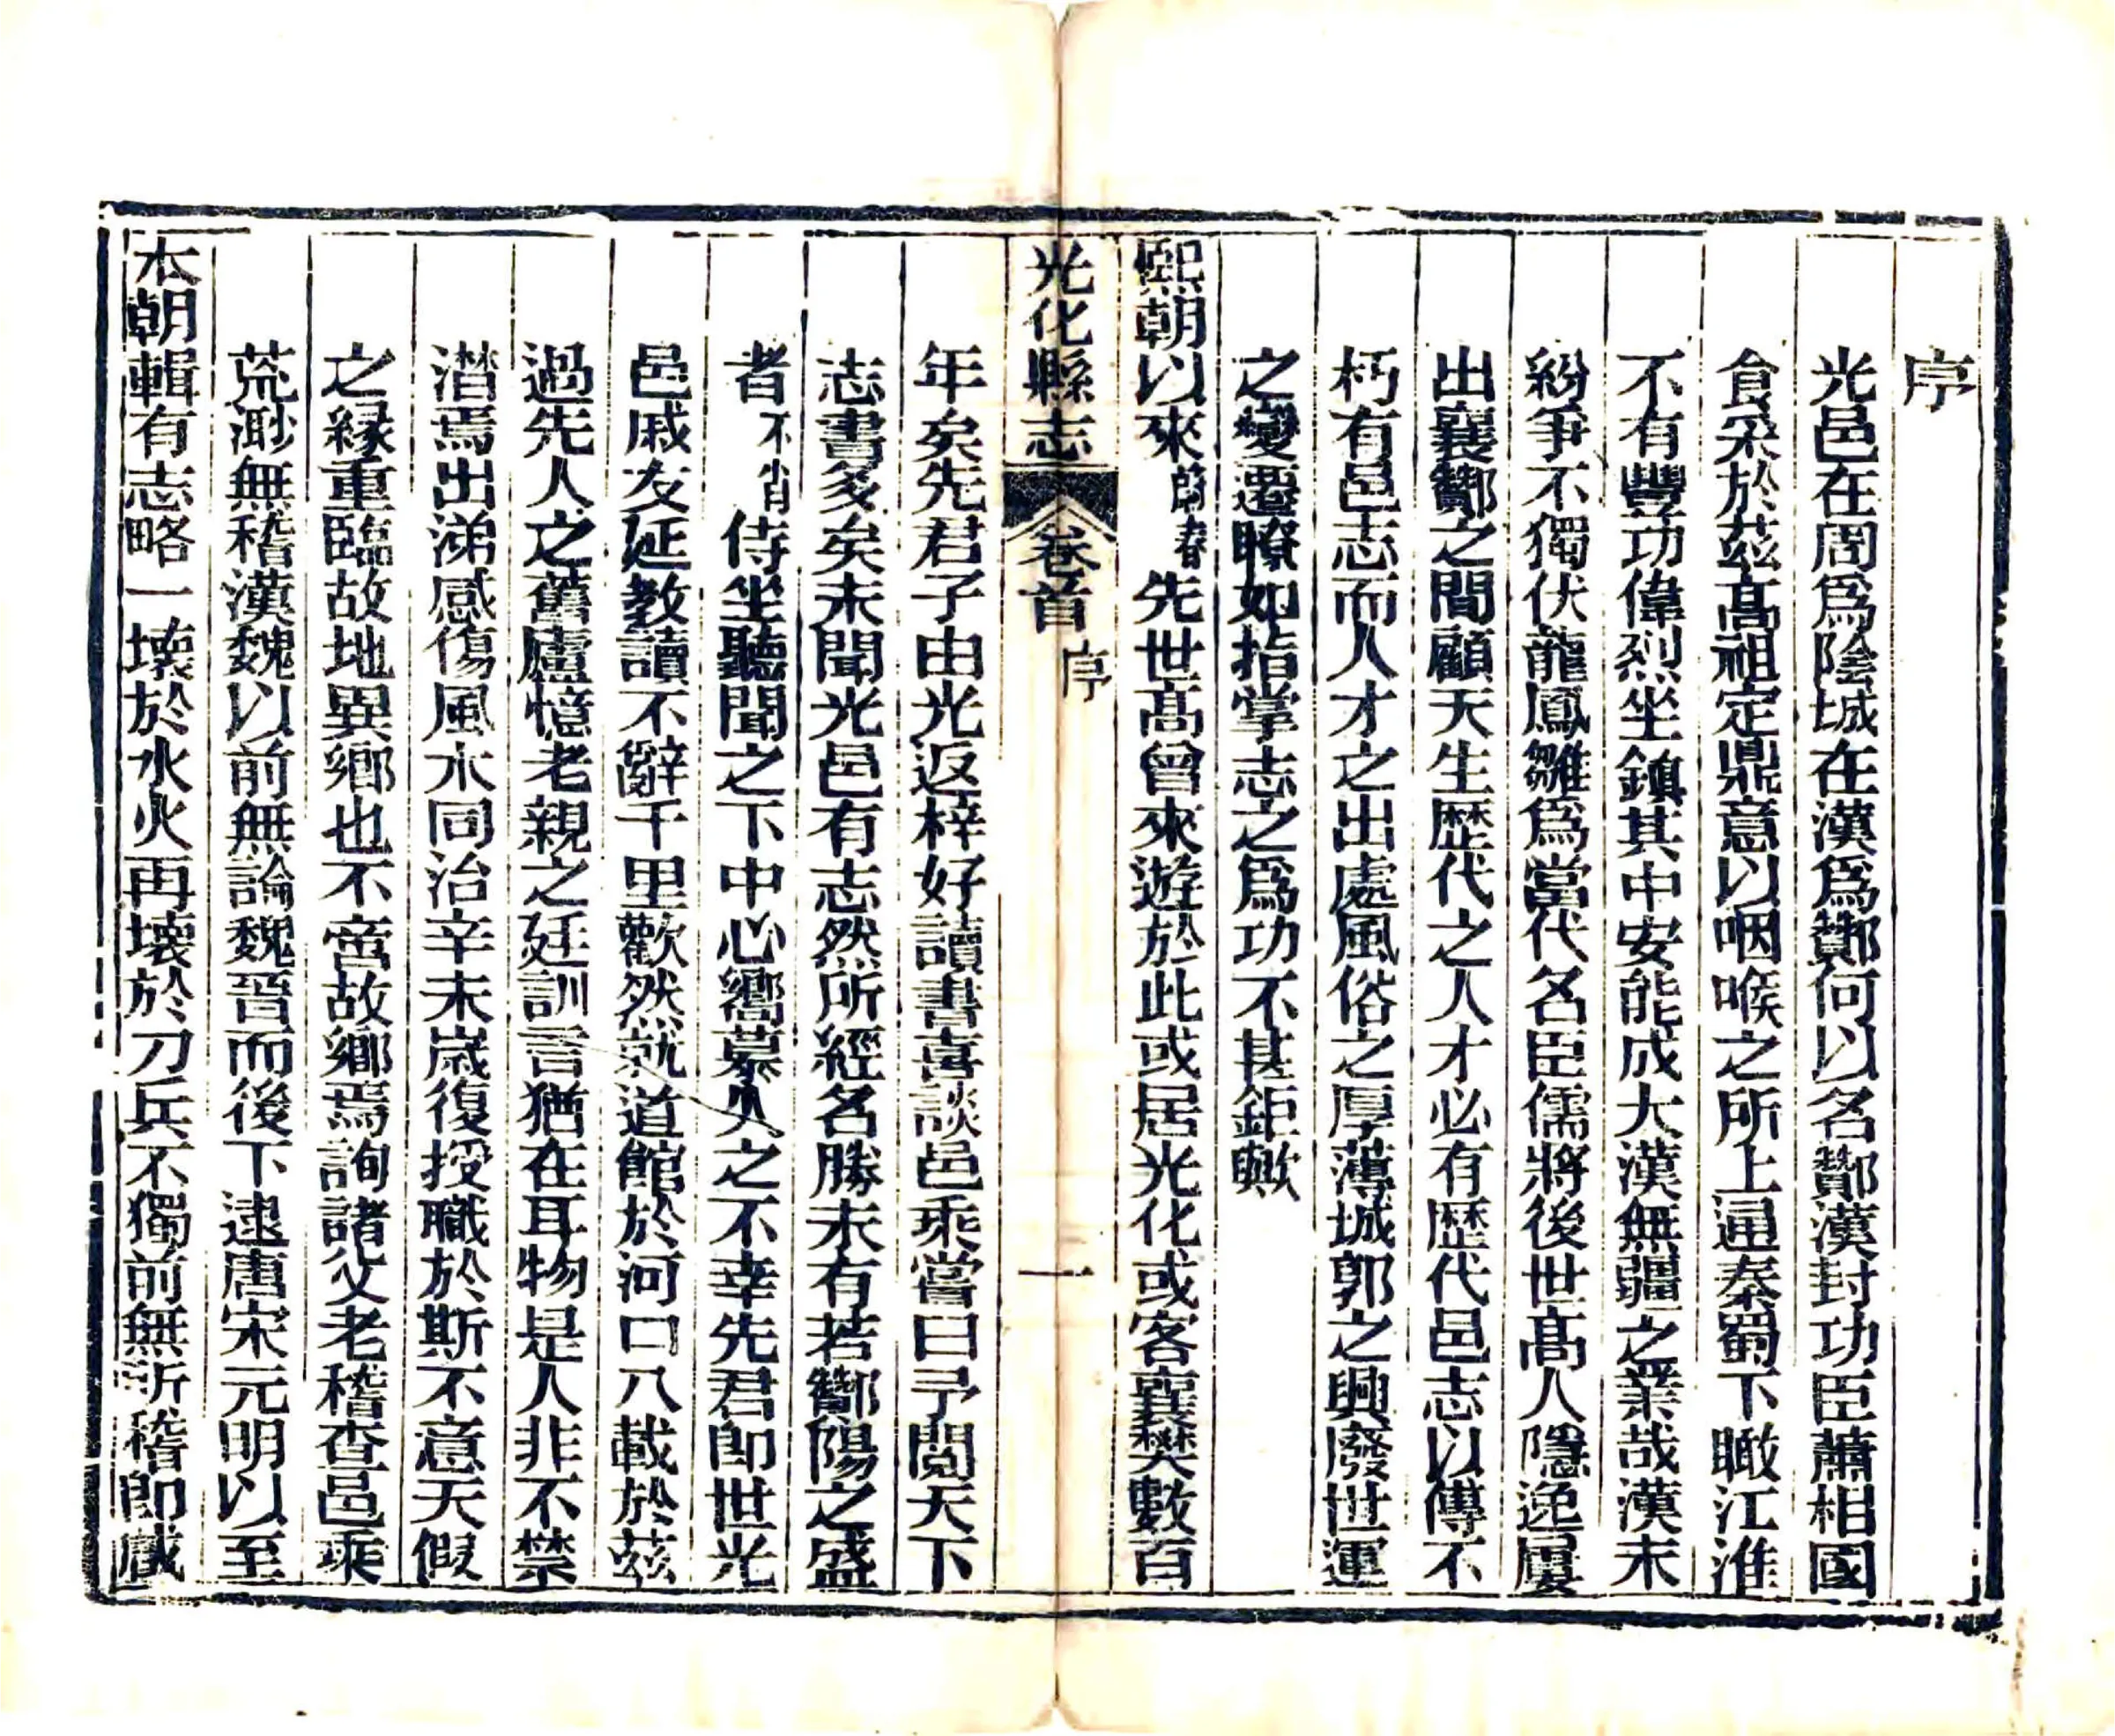 序
光邑在周爲陰城在漢爲酇何以名酇漢封功臣蕭相國
食采於茲髙祖定鼎意以咽喉之所上通秦蜀下瞰江淮
不有豐功偉烈坐鎮其中安能成大漢無疆之業哉漢末
紛爭不獨伏龍鳳雛爲當代名臣儒將後世髙人隱逸屢
出襄酇之間顧天生歴代之人才必有歴代邑志以傳不
朽有邑志而人才之出處風俗之厚薄城郭之興廢世運
之變遷瞭如指掌志之爲功不甚鉅歟
熙朝以來蔚春先世髙曾來遊於此或居光化或客襄樊數百
光化縣志 卷首 序 一
年矣先君子由光返梓好讀書喜談邑乘嘗曰予閱天下
志書多矣未聞光邑有志然所經名勝未有若酇陽之盛
者不肖侍坐聽聞之下中心嚮慕久之不幸先君卽世光
邑戚友延教讀不辭千里歡然就道館於河口八載於茲
過先人之舊廬憶老親之廷訓言猶在耳物是人非不禁
潸焉出涕感傷風木同治辛未歲復授職於斯不意天假
之緣重臨故地異鄉也不啻故鄉焉詢諸父老稽查邑乘
荒渺無稽漢魏以前無論魏晉而後下逮唐宋元明以至
本朝輯有志略一壞於水火再壞於刀兵不獨前無所稽卽咸